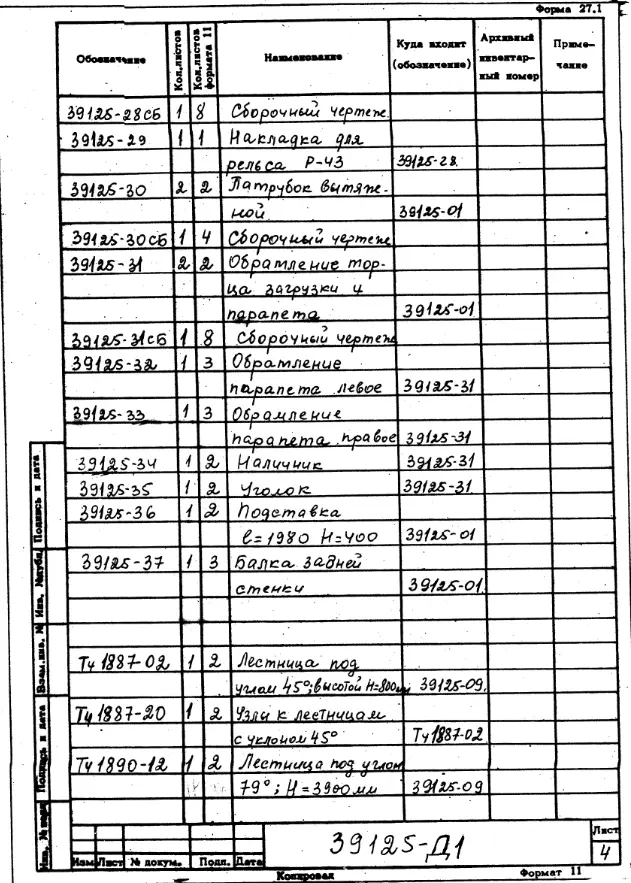 Форма 27.1
Обозначение Кол.листов Кол.листов формата 11 Наименование Куда входит (обозначение) Архивный инвентарный номер Примечание
39125-28СБ 1 8 Сборочный чертеж.
39125-29 1 1 Накладка для
рельса Р-43 39125-28.
39125-30 2 2 Патрубок вытяж-
ной 39125-01
39125-30СБ 1 4 Сборочный чертеж
39125-31 2 2 Обрамление тор-
ца загрузки и
парапета 39125-01
39125-31СБ 1 8 Сборочный чертеж
39125-32 1 3 Обрамление
парапета левое 39125-31
39125-33 1 3 Обрамление
парапета правое 39125-31
39125-34 1 2 Наличник 39125-31
39125-35 1 2 Уголок 39125-31
39125-36 1 2 Подставка
ℓ=1980 H=400 39125-01
39125-37 1 3 Балка задней
стенки 39125-01
Тч 1887-02 1 2 Лестница под
углом 45°; высотой H=800мм 39125-09.
Тч 1887-20 1 2 Узлы к лестницам
с уклоном 45° Тч 1887-02
Тч 1890-12 1 2 Лестница под углом
79°; H=3900мм 39125-09
Подпись и дата
Взам.инв. №
Подпись и дата
39125-Д1
Лист
4
Изм Лист № докум. Подп. Дата
Копировал Формат 11